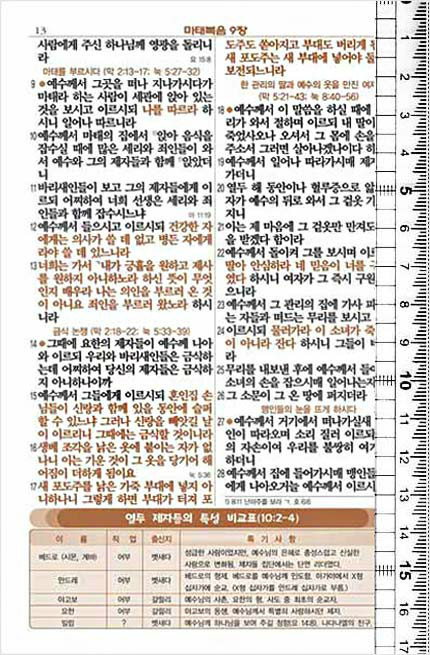 13
마태복음 9장
사람에게 주신 하나님께 영광을 돌리니
라
요 15:8
마태를 부르시다 (막 2:13-17; 눅 5:27-32)
9 예수께서 그곳을 떠나 지나가시다가
마태라 하는 사람이 세관에 앉아 있는
것을 보시고 이르시되 나를 따르라 하
시니 일어나 따르니라
10 예수께서 마태의 집에서 앉아 음식을
잡수실 때에 많은 세리와 죄인들이 와
서 예수와 그의 제자들과 함께 앉았더
니
11 바리새인들이 보고 그의 제자들에게 이
르되 어찌하여 너희 선생은 세리와 죄
인들과 함께 잡수시느냐
마 11:19
12 예수께서 들으시고 이르시되 건강한 자
에게는 의사가 쓸 데 없고 병든 자에게
라야 쓸 데 있느니라
13 너희는 가서 내가 긍휼을 원하고 제사
를 원하지 아니하노라 하신 뜻이 무엇
인지 배우라 나는 의인을 부르러 온 것
이 아니요 죄인을 부르러 왔노라 하시
니라
금식 논쟁 (막 2:18-22; 눅 5:33-39)
14 그때에 요한의 제자들이 예수께 나아
와 이르되 우리와 바리새인들은 금식하
는데 어찌하여 당신의 제자들은 금식하
지 아니하나이까
15 예수께서 그들에게 이르시되 혼인집 손
님들이 신랑과 함께 있을 동안에 슬퍼
할 수 있느냐 그러나 신랑을 빼앗길 날
이 이르리니 그때에는 금식할 것이니라
16 생베 조각을 낡은 옷에 붙이는 자가 없
나니 이는 기운 것이 그 옷을 당기어 해
어짐이 더하게 됨이요
눅 5:36
17 새 포도주를 낡은 가죽 부대에 넣지 아
니하나니 그렇게 하면 부대가 터져 포
도주도 쏟아지고 부대도 버리게
새 포도주는 새 부대에 넣어야
보전되느니라
한 관리의 딸과 예수의 옷을 만진 여자
(막 5:21-43; 눅 8:40-56)
18 예수께서 이 말씀을 하실 때에
리가 와서 절하며 이르되 내 딸이
죽었사오나 오셔서 그 몸에 손을
주소서 그러면 살아나겠나이다 하
19 예수께서 일어나 따라가시매 제자
가더니
20 열두 해 동안이나 혈루증으로 앓
자가 예수의 뒤로 와서 그 겉옷 가
지니
21 이는 제 마음에 그 겉옷만 만져도
을 받겠다 함이라
22 예수께서 돌이켜 그를 보시며 이
딸아 안심하라 네 믿음이 너를
였다 하시니 여자가 그 즉시 구원
으니라
23 예수께서 그 관리의 집에 가사 피
는 자들과 떠드는 무리를 보시고
24 이르시되 물러가라 이 소녀가 죽
이 아니라 잔다 하시니 그들이 비
라
25 무리를 내보낸 후에 예수께서 들어
소녀의 손을 잡으시매 일어나는지
26 그 소문이 그 온 땅에 퍼지더라
맹인들의 눈을 뜨게 하시다
27 예수께서 거기에서 떠나가실새
인이 따라오며 소리 질러 이르되
의 자손이여 우리를 불쌍히 여기
하더니
28 예수께서 집에 들어가시매 맹인들
에게 나아오거늘 예수께서 이르시
열두 제자들의 특성 비교표(10:2-4)
이 름 직 업 출신지 특 기 사 항
베드로 (시몬, 게바) 어부 벳새다 성급한 사람이었지만, 예수님의 은혜로 충성스럽고 신실한
사람으로 변화됨, 제자들 집단에서는 단연 리더였다.
안드레 어부 벳새다 베드로의 형제, 베드로를 예수께 인도함, 아가야에서 X형
십자가에 순교, (X형 십자가를 안드레 십자가로 부름,)
야고보 어부 갈릴리 예수님의 사촌, 요한의 형, 사도 중 최초의 순교자,
요한 어부 갈릴리 야고보의 동생, 예수님께서 특별히 사랑하시던 제자,
빌립 ? 벳새다 예수님께 하나님을 보여 주길 청함(요 14:8), 나다나엘의 친구,
0
1
2
3
4
5
6
7
8
9
10
11
12
13
14
15
16
17